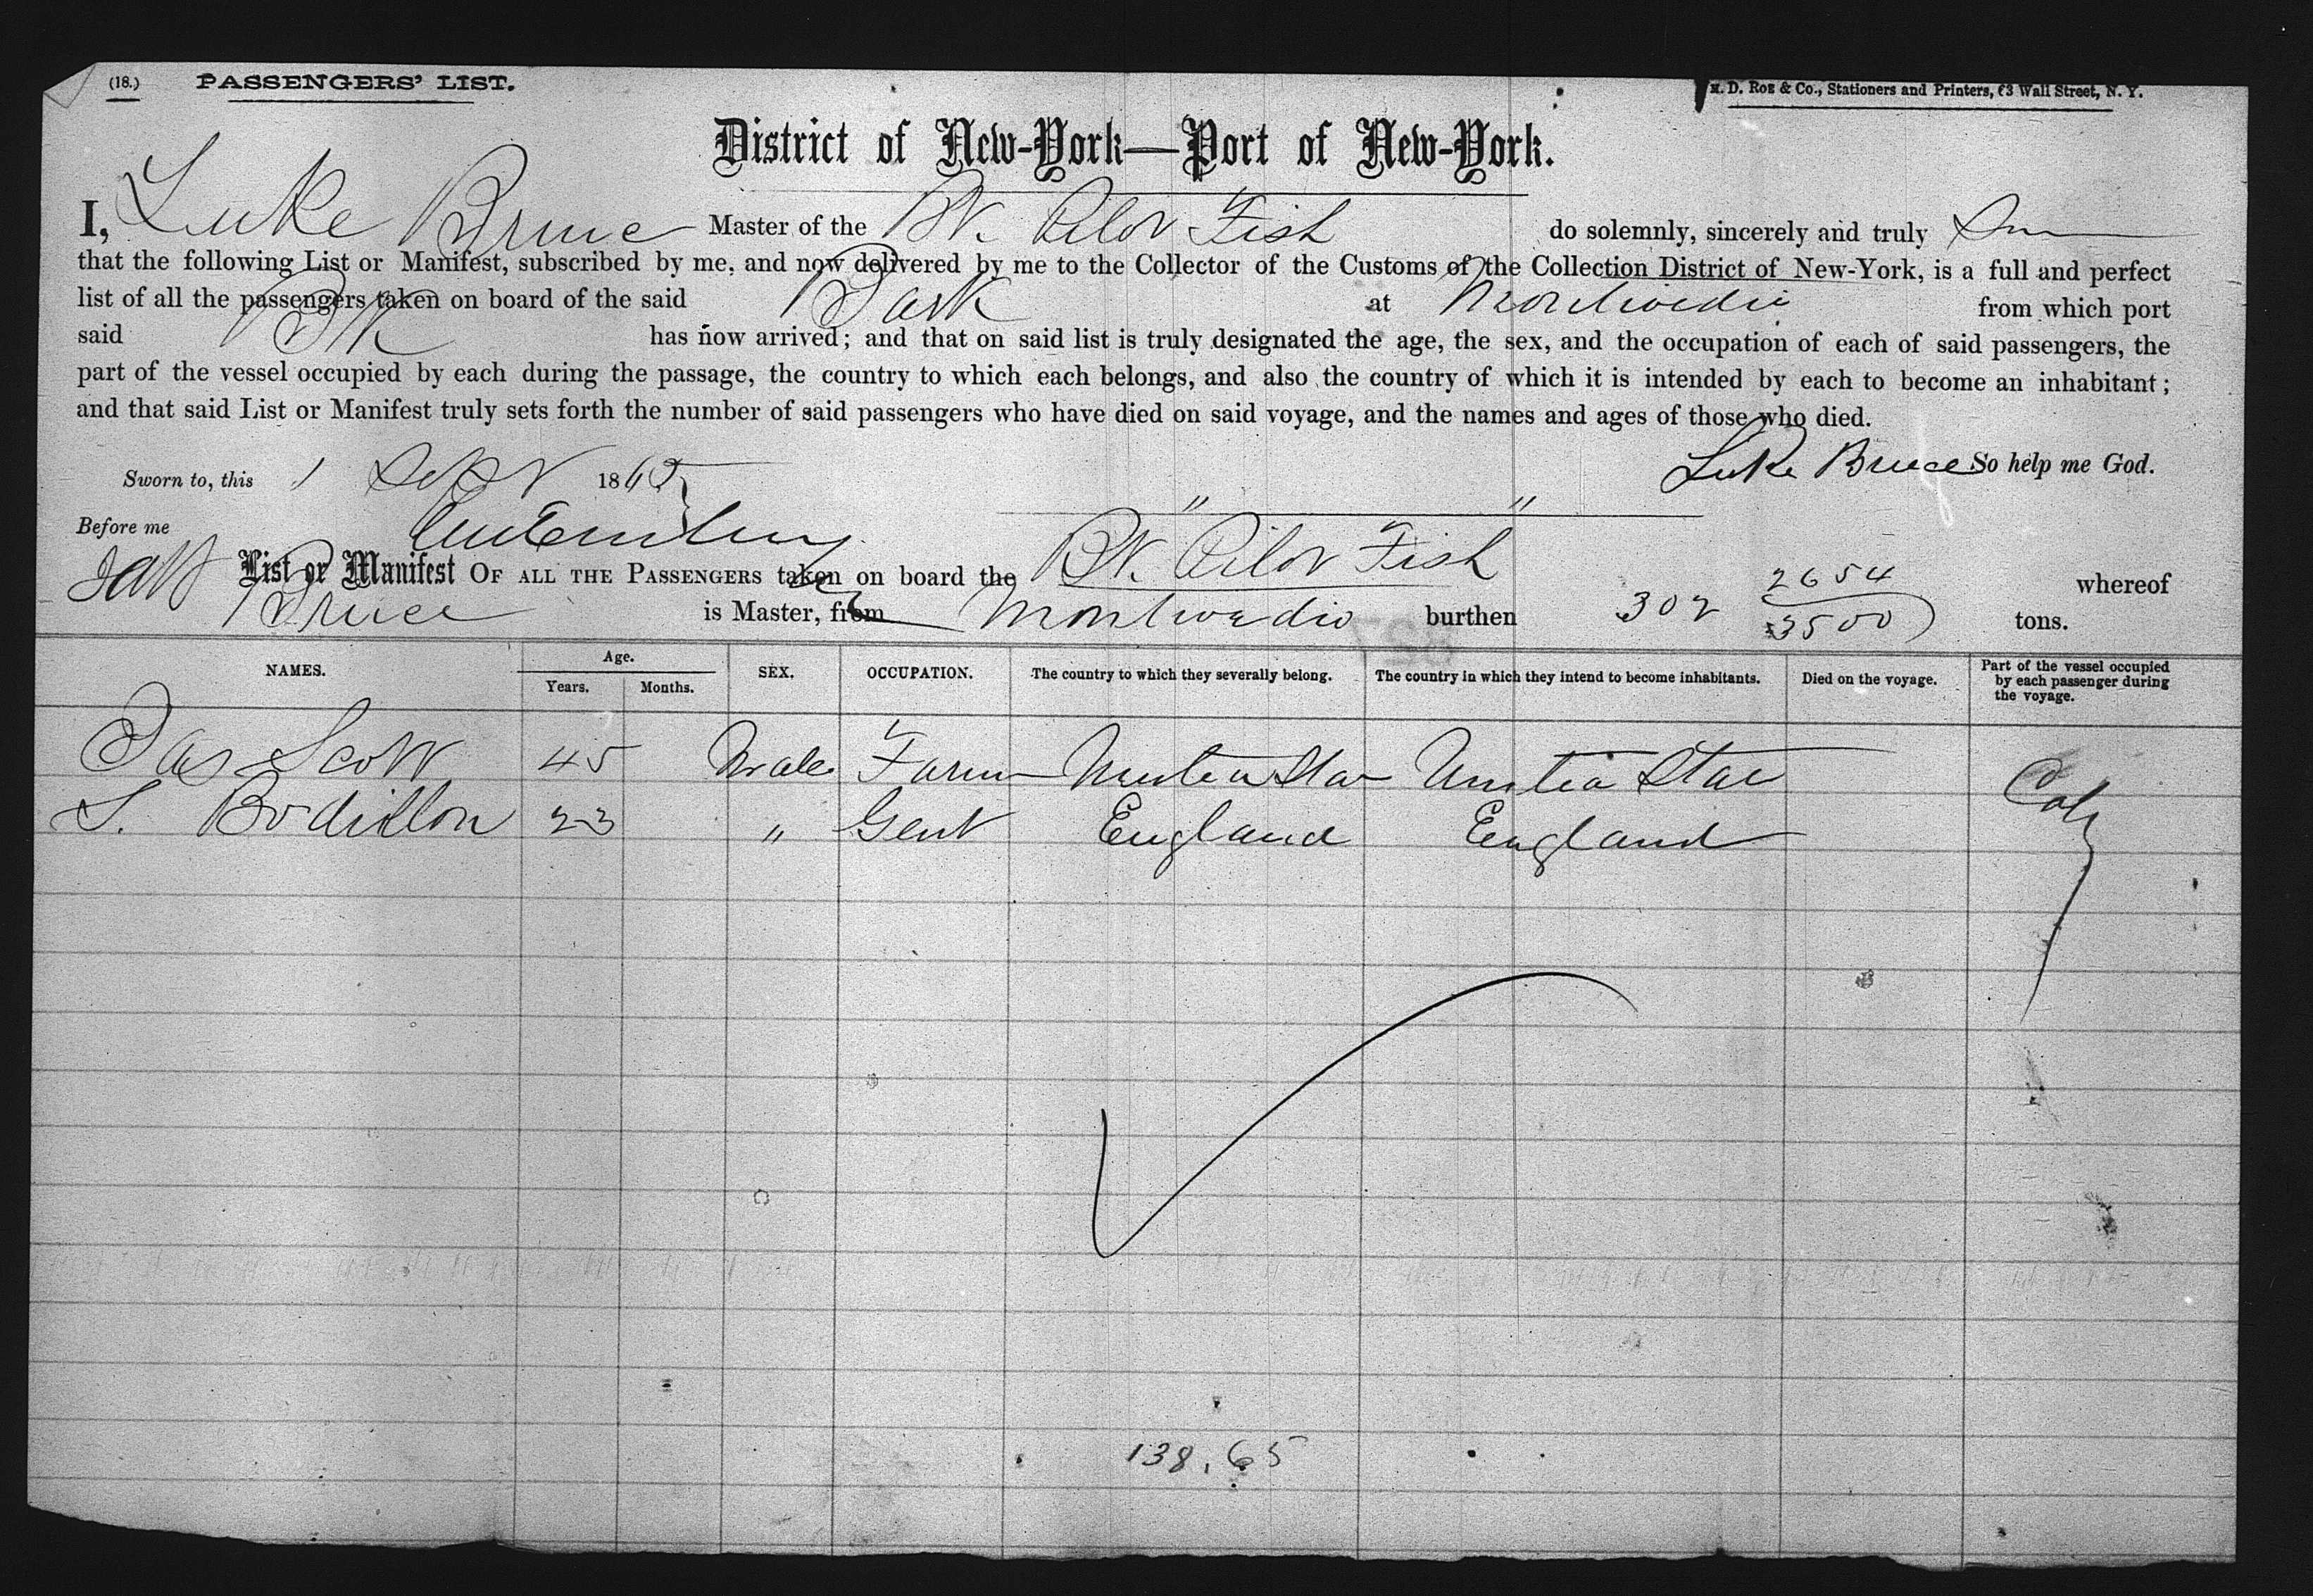 (18.) PASSENGERS' LIST.
H. D. Roe & Co., Stationers and Printers, 63 Wall Street, N. Y.
District of New-York—Port of New-York.
I, Luke Bruce Master of the Bk. Pilot Fish do solemnly, sincerely and truly
that the following List or Manifest, subscribed by me, and now delivered by me to the Collector of the Customs of the Collection District of New-York, is a full and perfect
list of all the passengers taken on board of the said Bark at Montevideo from which port
said Bk has now arrived; and that on said list is truly designated the age, the sex, and the occupation of each of said passengers, the
part of the vessel occupied by each during the passage, the country to which each belongs, and also the country of which it is intended by each to become an inhabitant;
and that said List or Manifest truly sets forth the number of said passengers who have died on said voyage, and the names and ages of those who died.
Sworn to, this 1 Sept 1865 Luke Bruce So help me God.
Before me " "
List or Manifest OF ALL THE PASSENGERS taken on board the Bk. Pilot Fish whereof
Bruce is Master, from Montevideo burthen 302 2654 3500 tons.
NAMES. Age. Years. Months. SEX. OCCUPATION. The country to which they severally belong. The country in which they intend to become inhabitants. Died on the voyage. Part of the vessel occupied by each passenger during the voyage.
Jas Scott 45 Male Farm United Sta United Stae Cab
S. Bodillon 23 " Gent England England
138,65